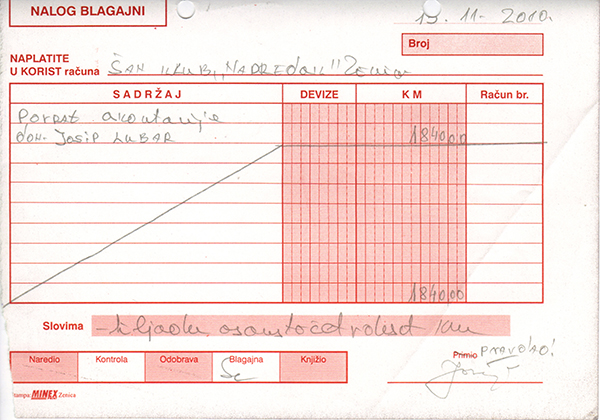 NALOG BLAGAJNI
13. 11 - 2000.
Broj
NAPLATITE
U KORIST računa ŠAH KLUB „NAPREDAK" Zenica
SADRŽAJ DEVIZE KM Račun br.
Povrat akontacije
don. Josip LUBAR 1840,00
1840,00
Slovima - hiljadu osamstočetrdeset KM
Naredio Kontrola Odobrava Blagajna Knjižio
Primio
Štampa: MINEX Zenica